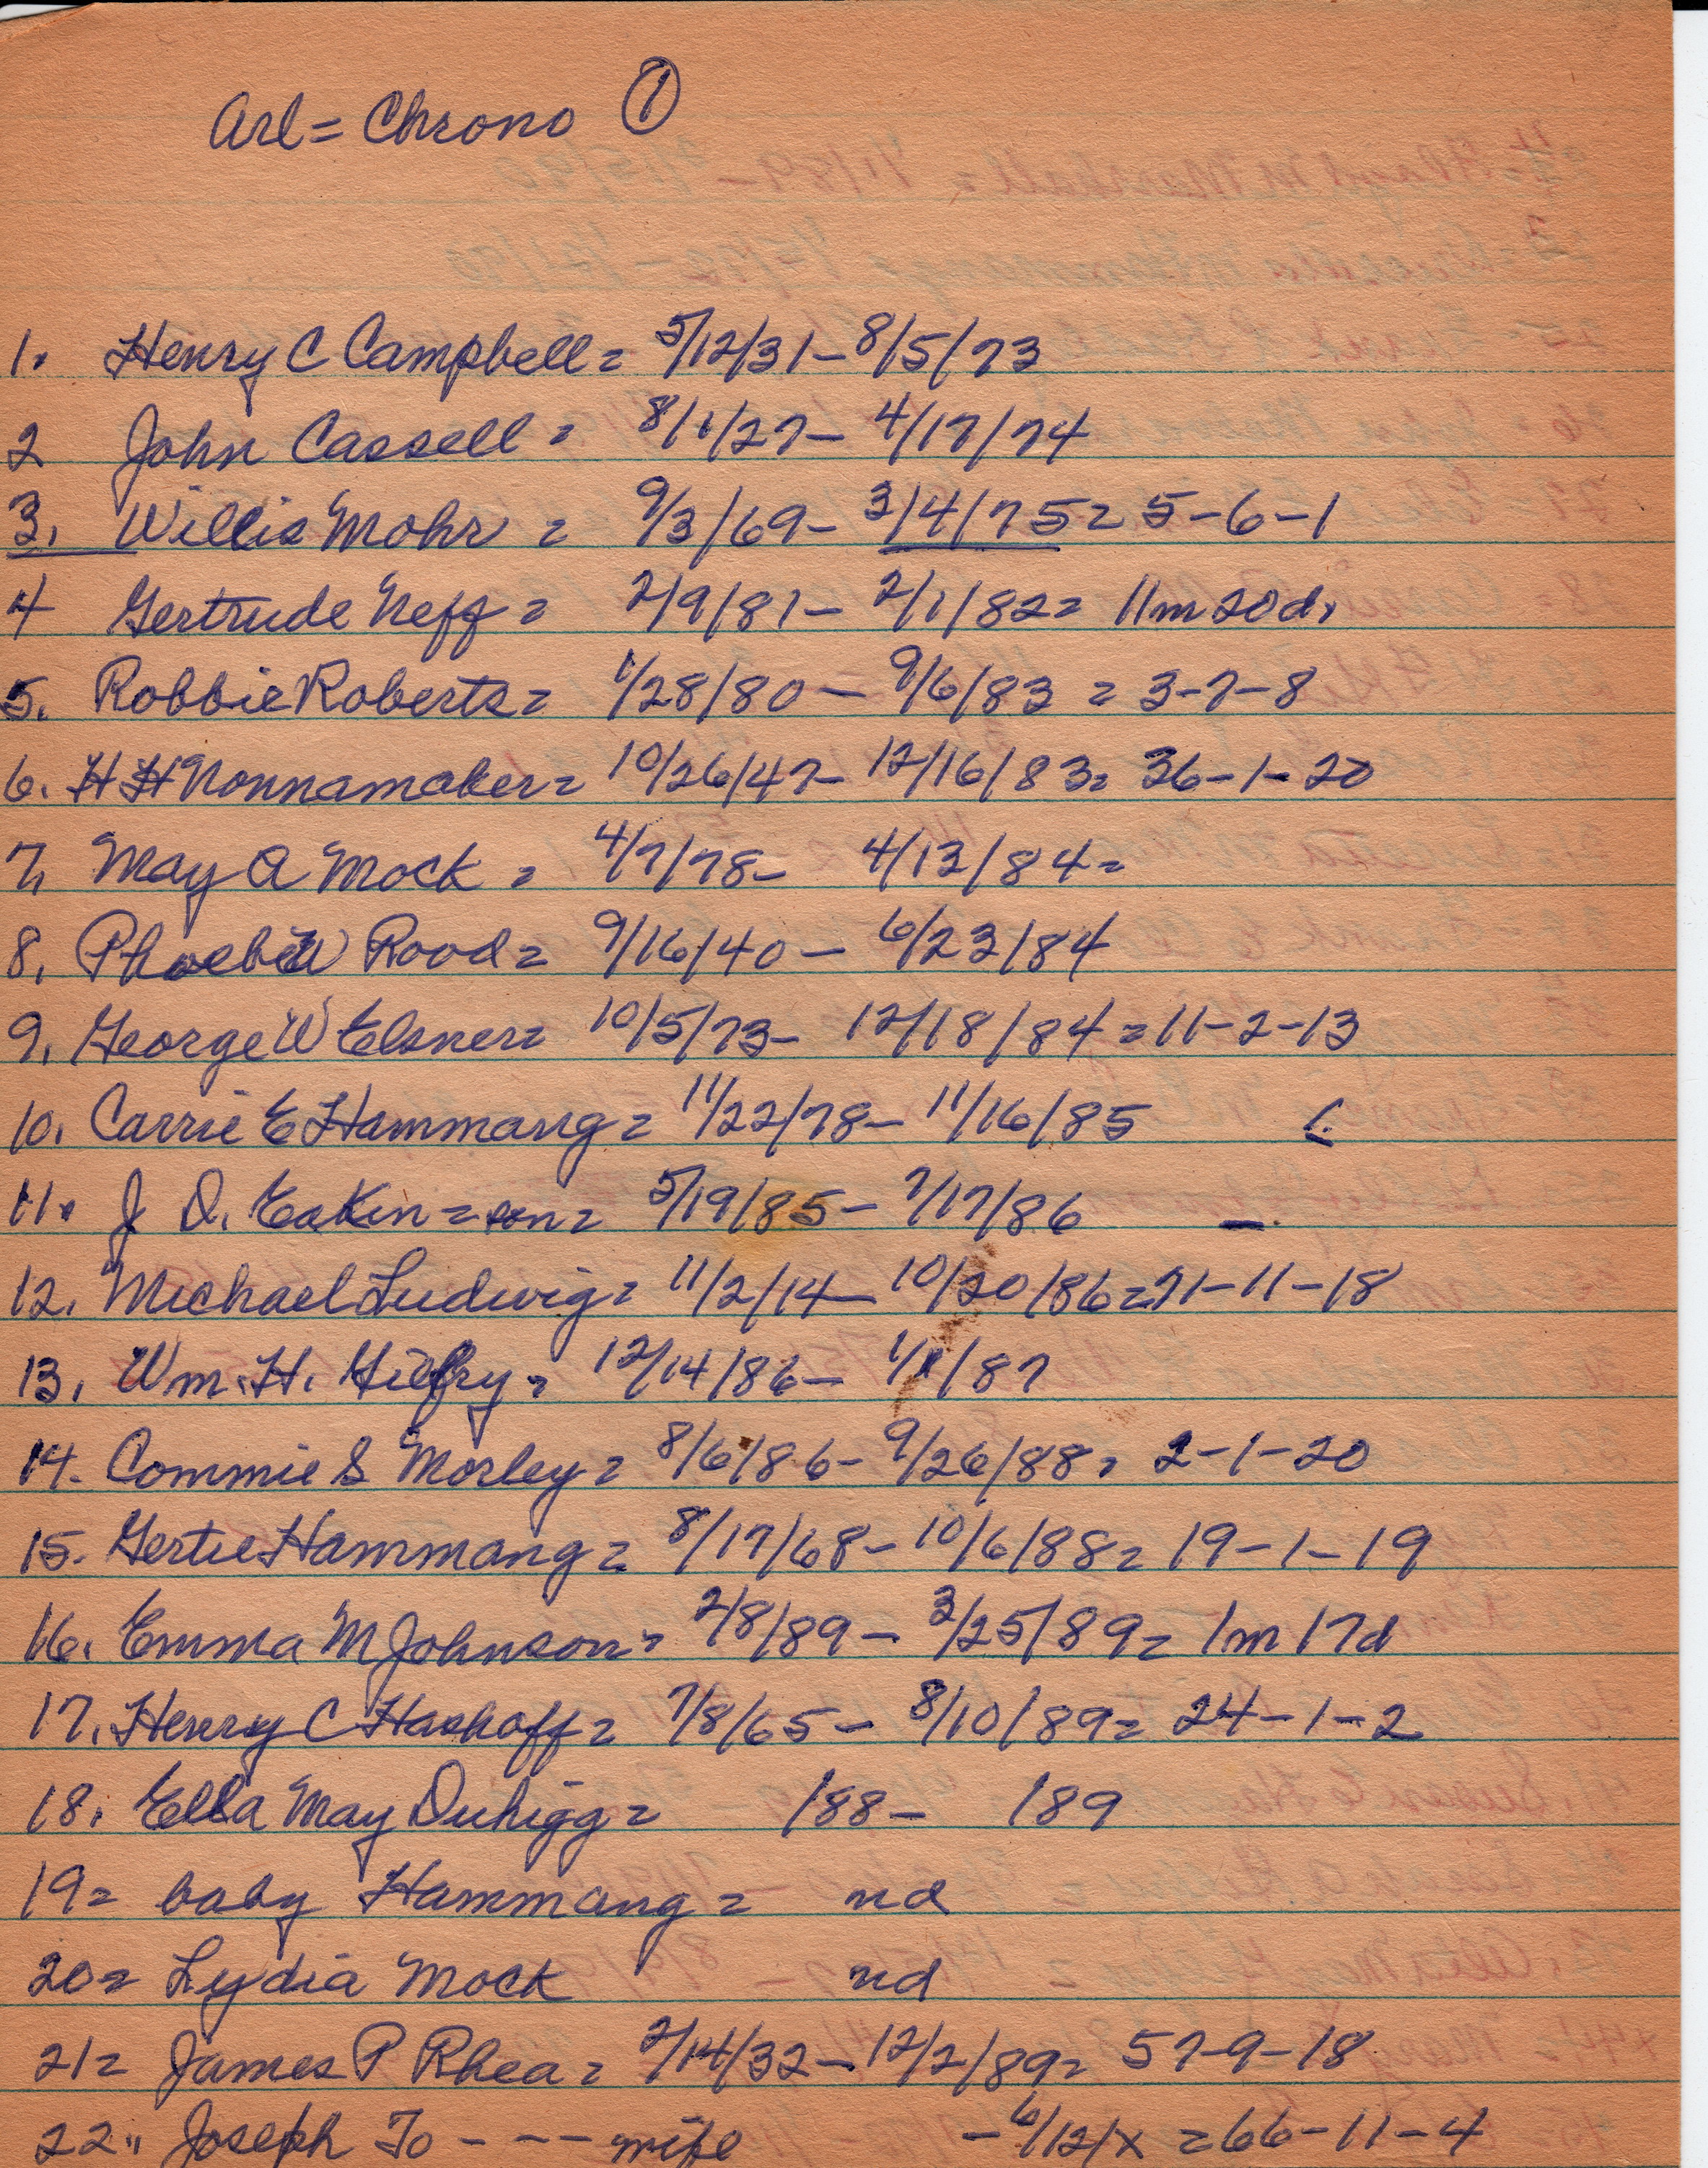 Arl = Chrono ①
1. Henry C Campbell = 5/12/31 - 8/5/73
2 John Cassell = 8/1/27 - 4/17/74
3. Willis Mohr = 9/3/69 - 3/4/75 = 5-6-1
4 Gertrude Neff = 2/9/81 - 2/1/82 = 11m 20d.
5. Robbie Roberts = 1/28/80 - 9/6/83 = 3-7-8
6. H H Nonnamaker = 10/26/47 - 12/16/83 = 36-1-20
7. May A Mock = 4/7/78 - 4/13/84 =
8. Phoebe W Rood = 9/16/40 - 6/23/84
9. George W Elsner = 10/5/73 - 12/18/84 = 11-2-13
10. Carrie E Hammang = 11/22/78 - 11/16/85
11. J D. Eakin = son = 5/19/85 - 7/17/86 -
12. Michael Ludwig = 11/2/14 - 10/20/86 = 71-11-18
13. Wm. H. = 12/14/86 - 1/1/87
14. Commie S Morley = 8/6/86 - 9/26/88 = 2-1-20
15. Gertie Hammang = 8/17/68 - 10/6/88 = 19-1-19
16. Emma M Johnson = 2/8/89 - 3/25/89 = 1m 17d
17. Henry C Hashoff = 7/8/65 - 8/10/89 = 24-1-2
18. Ella May Duhigg = /88 - /89
19 = baby Hammang = nd
20 = Lydia Mock nd
21 = James P Rhea = 2/14/32 - 12/2/89 = 57-9-18
22.. Joseph To - - - wife - 6/12/x = 66-11-4